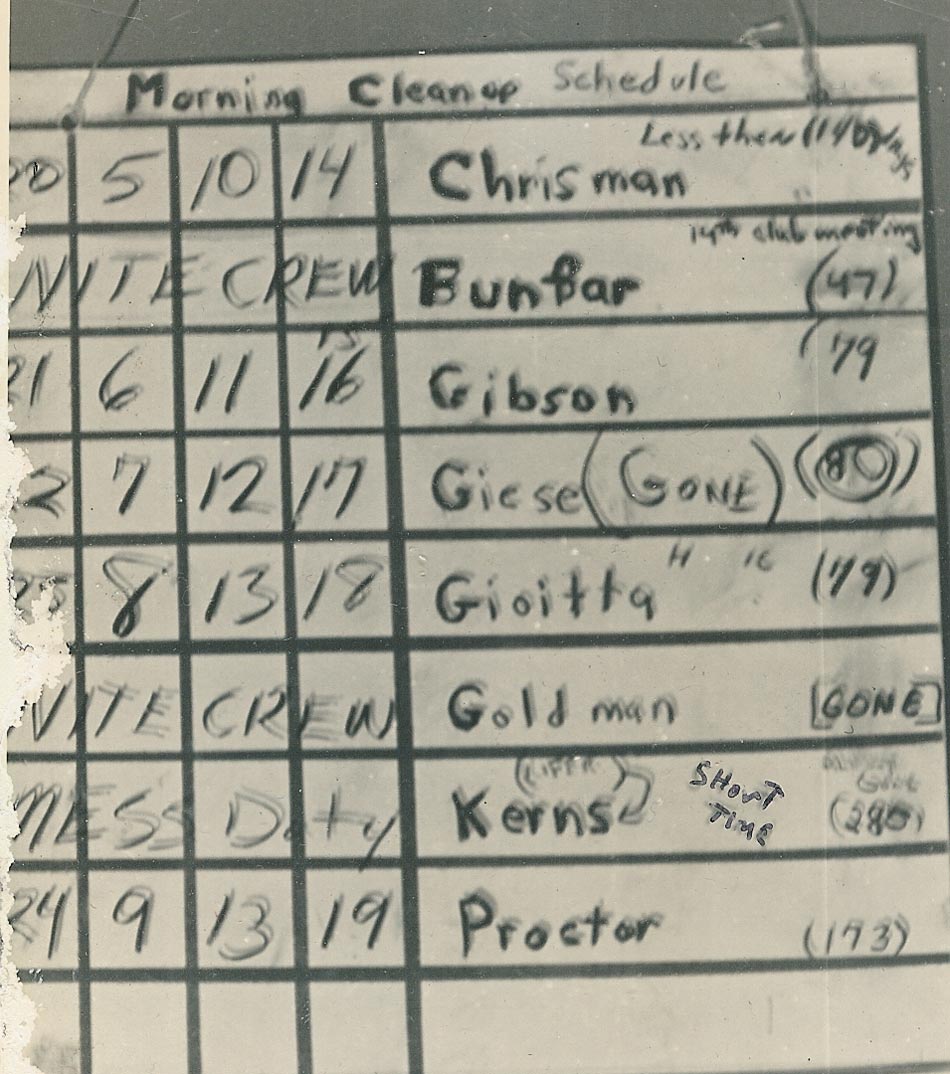 Morning Cleanup Schedule
Less then (140 days
20 5 10 14 Chrisman
14th club meeting
NITE CREW Bunbar (47)
15
21 6 11 16 Gibson (79
7 12 17 Giese (GONE) (80)
8 13 18 Gioitta (79)
NITE CREW Goldman [GONE]
(LIFER)
MESS Duty Kerns SHORT
TIME (280)
24 9 13 19 Proctor (173)